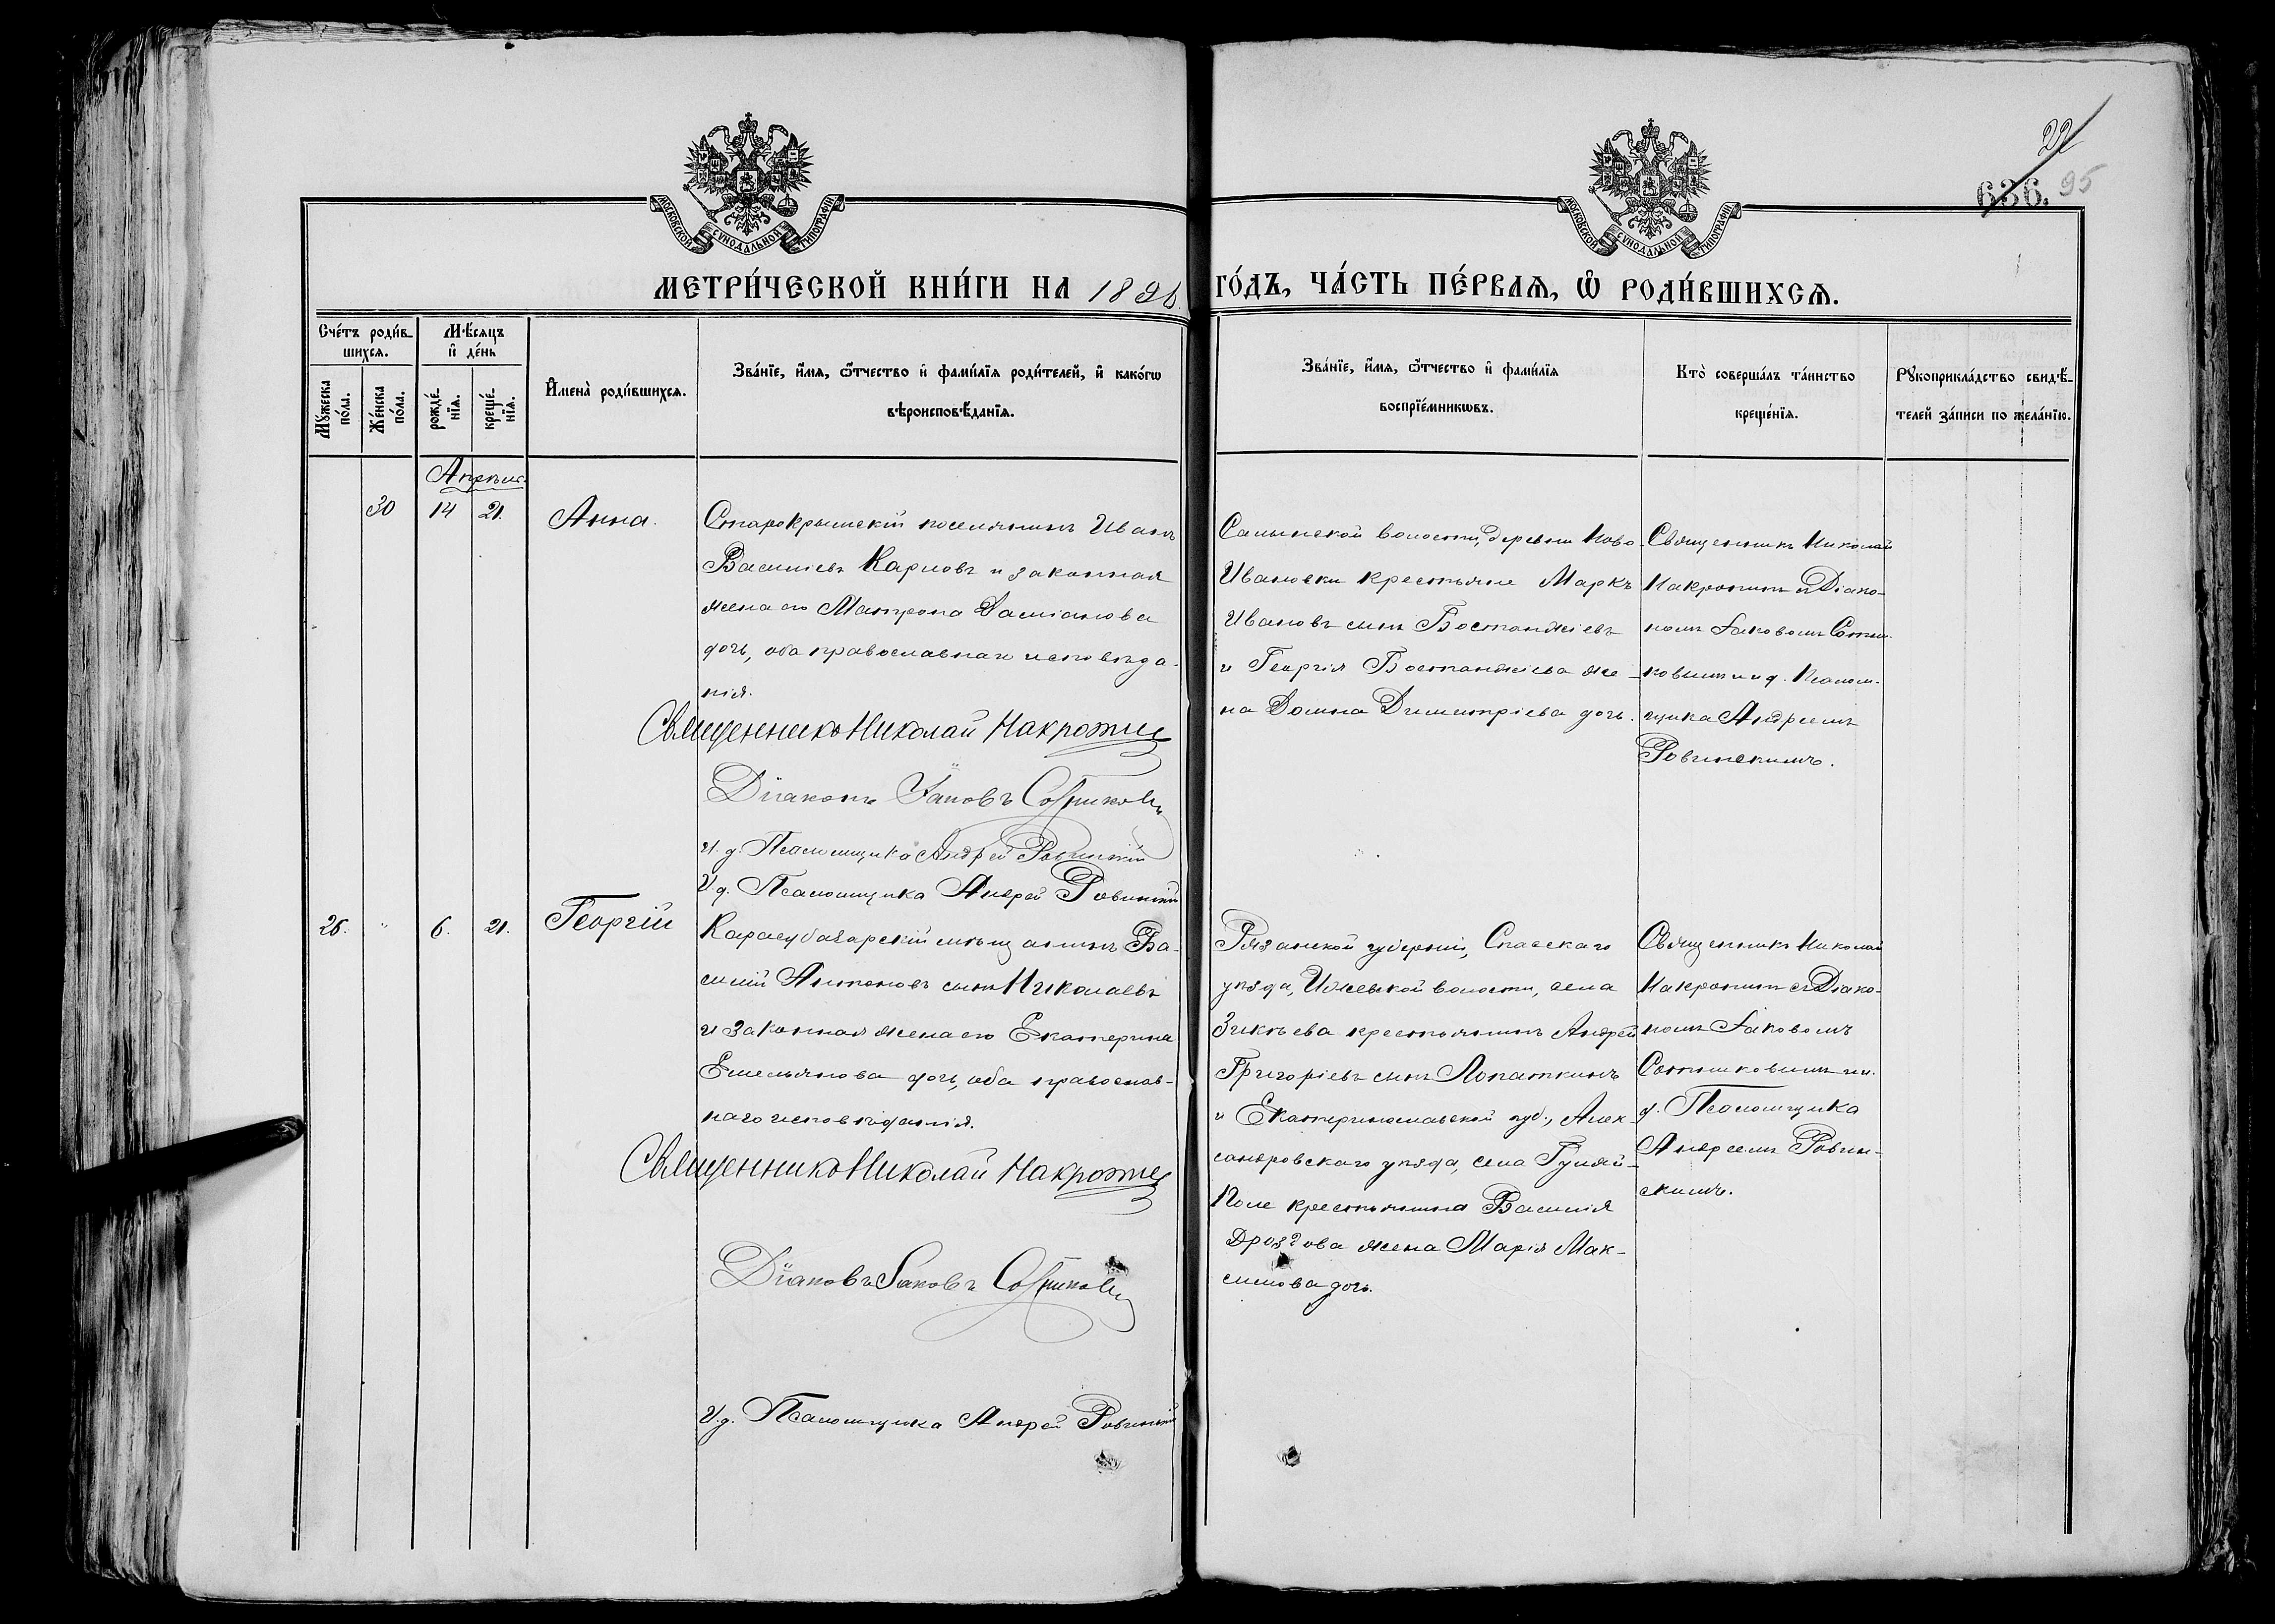 МОСКОВСКОЙ СѴНОДАЛЬНОЙ ТИПОГРАФІИ
МОСКОВСКОЙ СѴНОДАЛЬНОЙ ТИПОГРАФІИ
22
636. 95
МЕТРИ́ЧЕСКОЙ КНИ́ГИ НА 1896 ГО́ДЪ, ЧА́СТЬ ПЕ́РВАѦ, Ѡ҆ РОДИ́ВШИХСѦ.
Сче́тъ роди́в-
шихсѧ.
М‌ѣсяцъ
и҆ де́нь
Мꙋжеска
по́ла.
Же́нска
по́ла.
рожде́-
нїѧ.
креще́-
нїѧ.
И҆мена̀ роди́вшихсѧ.
Зва́нїе, и҆́мѧ, ѻ҆́тчество и҆ фами́лїѧ роди́телей, и҆ како́гѡ
вѣроисповѣ́данїѧ.
Зва́нїе, и҆́мѧ, ѻ҆́тчество и҆ фами́лїѧ
воспрїе́мникѡвъ.
Кто̀ соверша́лъ та́инство
креще́нїѧ.
Рꙋкоприкла́дство свидѣ́-
телей за́писи по жела́нїю.
Апрѣль
30 14 21. Анна.
Старокрымскій поселянинъ Иванъ
Василіевъ Карповъ и законная
жена его Матрона Даміанова
дочь, оба православнаго исповѣда-
нія.
Священникъ Николай Накрожи
Діаконъ Іаковъ Сотниковъ
и. д. Псаломщика Андрей Ровинскій
И. д. Псаломщика Андрей Ровинскій
Салынской волости, деревни Ново-
Ивановки крестьяне Маркъ
Ивановъ сынъ Бостанжіевъ
и Георгія Бостанжіева же-
на Домна Димитріева дочь.
Священникъ Николай
съ Діако-
номъ Іаковомъ Сотни-
ковымъ и и. д. Псалом-
щика Андреемъ
Ровинскимъ.
26. " 6. 21. Георгій
Карасубазарскій мѣщанинъ Ва-
силій Антоновъ сынъ Николаевъ
и законная жена его Екатерина
Емельянова дочь, оба православ-
наго исповѣданія.
Священникъ Николай Накрожи
Діаконъ Іаковъ Сотниковъ
И. д. Псаломщика Андрей Ровинскій
Рязанской губерніи, Спасскаго
уѣзда, Ижевской волости, села
Зикѣева крестьянинъ Андрей
Григоріевъ сынъ Лопаткинъ
и Екатеринославской губ., Алек-
сандровскаго уѣзда, села Гуляй-
Поле крестьянина Василія
Дроздова жена Марія Мак-
симова дочь.
Священникъ Николай
съ Діако-
номъ Іаковомъ
Сотниковымъ и и.
д. Псаломщика
Андреемъ Ровин-
скимъ.